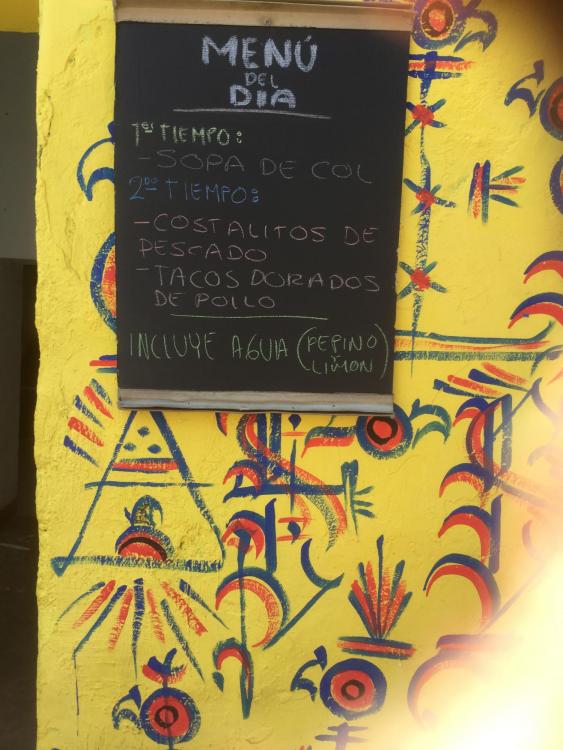 MENÚ
DEL
DIA
1er TIEMPO:
-SOPA DE COL
2do TIEMPO:
-COSTALITOS DE
PESCADO
-TACOS DORADOS
DE POLLO
INCLUYE AGUA (PEPINO Y
LIMON)